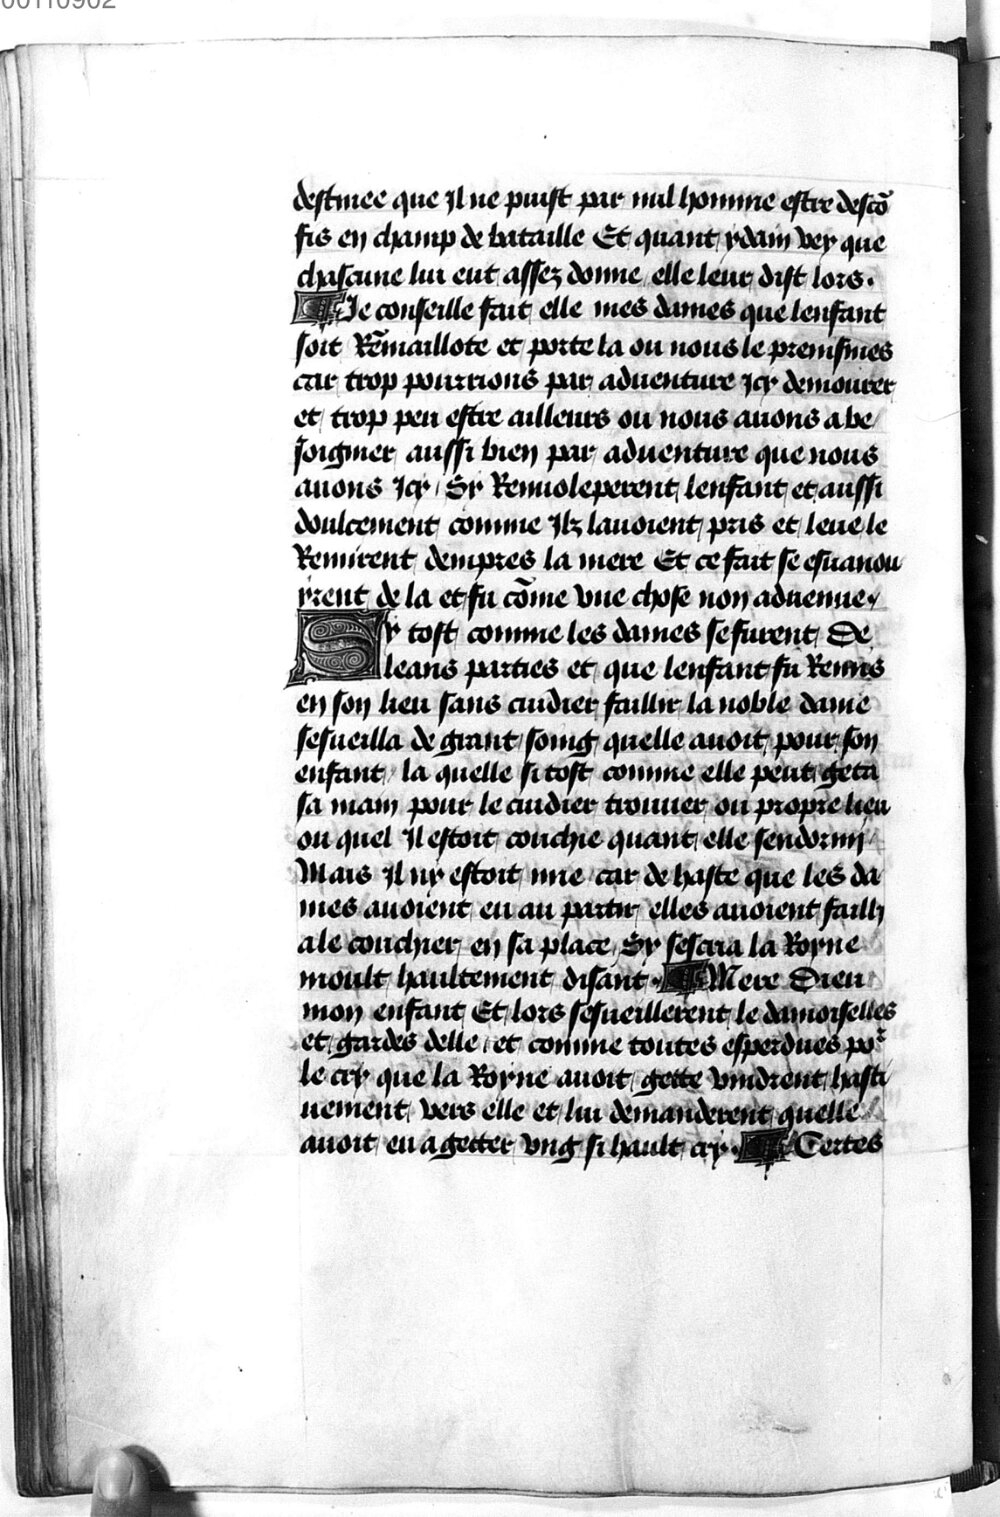 00110902
destinee que Il ne puist par nul homme estre descõ
fis en champ de bataille Et quant ydain vey que
chascune lui eut assez donne elle leur dist lors.
Je conseille fait elle mes dames que lenfant
soit Rẽmaillote et porte la ou nous le preinsmes
car trop pourrions par aduenture Icy demourer
et trop peu estre ailleurs ou nous auons a be
soigner aussi bien par aduenture que nous
auons Icy / Sy Renuoleperent lenfant et aussi
doulcement comme Ilz lauoient pris et leue le
Remirent dempres la mere Et ce fait se esuanou
yrent de la et fu cõme vne chose non aduenue.
Sy tost comme les dames se furent De
leans parties et que lenfant fu Remis
en son lieu sans cuidier faillir la noble dame
sesueilla de grant soing quelle auoit pour son
enfant / la quelle si tost comme elle peut getta
sa main pour le cuidier trouuer ou propre lieu
ou quel Il estoit couchie quant elle sendormi /
Mais Il ny estoit mie car de haste que les da
mes auoient eu au partir elles auoient failly
a le couchier en sa place / Sy sescria la Royne
moult haultement disant. Mere Dieu
mon enfant Et lors sesueillerent le damoiselles
et gardes delle / et comme toutes esperdues poʳ
le cry que la Royne auoit gette vindrent hasti
uement vers elle et lui demanderent quelle
auoit eu a getter vng si hault cry. Certes